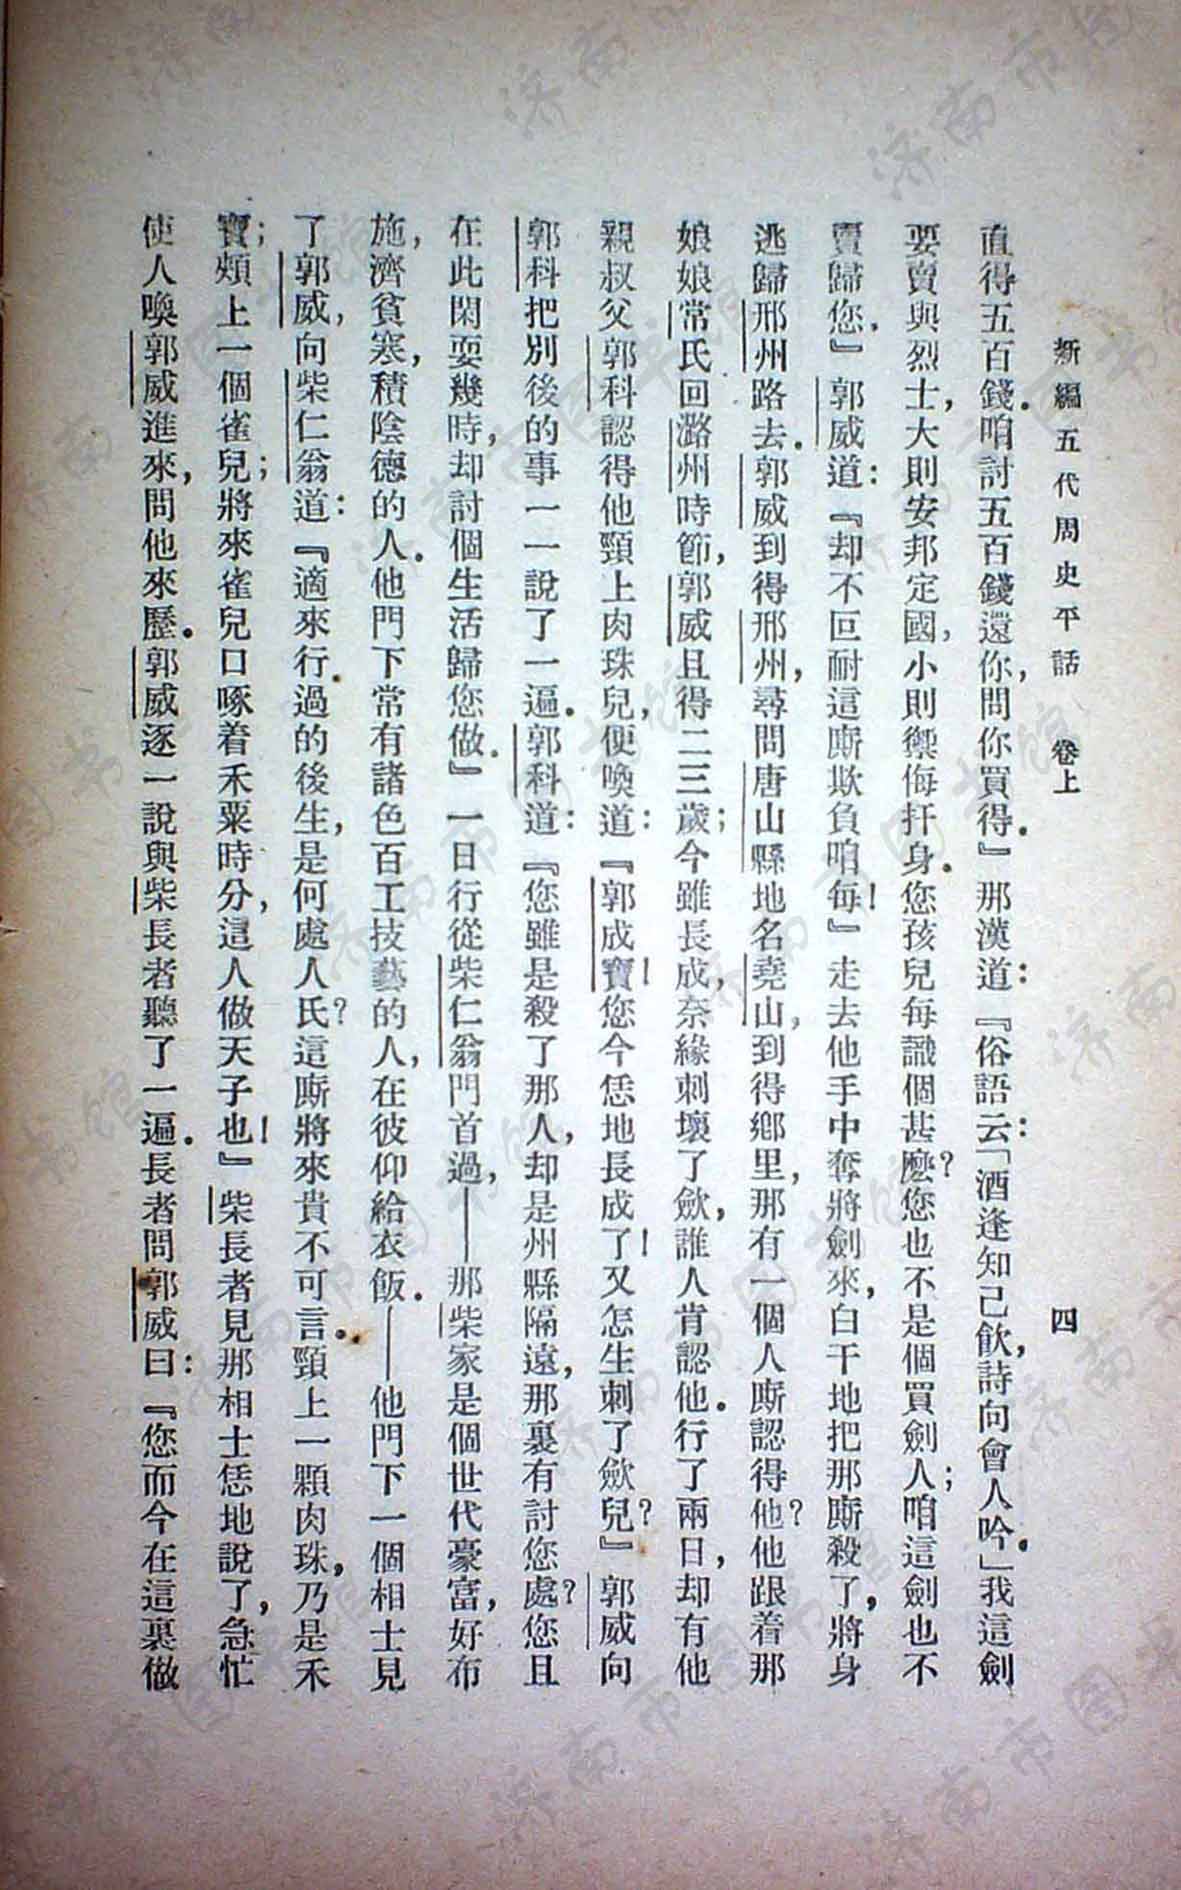 新編五代周史平話　卷上　四
直得五百錢．咱討五百錢還你，問你買得．』那漢道：『俗語云：「酒逢知己飲，詩向會人吟．」我這劍
要賣與烈士，大則安邦定國，小則禦侮扞身．您孩兒每識個甚麽？您也不是個買劍人；咱這劍也不
賣歸您．』郭威道：『却不叵耐這廝欺負咱每！』走去他手中奪將劍來，白干地把那廝殺了，將身
逃歸邢州路去．郭威到得邢州，尋問唐山縣地名堯山，到得鄉里，那有一個人廝認得他？他跟着那
娘娘常氏回潞州時節，郭威且得二三歲；今雖長成，奈緣刺壞了歛，誰人肯認他．行了兩日，却有他
親叔父郭科認得他頸上肉珠兒，便喚道：『郭成寶！您今恁地長成了！又怎生刺了歛兒？』郭威向
郭科把別後的事一一說了一遍．郭科道：『您雖是殺了那人，却是州縣隔遠，那裏有討您處？您且
在此閑耍幾時，却討個生活歸您做．』一日行從柴仁翁門首過，——那柴家是個世代豪富，好布
施，濟貧寒，積陰德的人．他門下常有諸色百工技藝的人，在彼仰給衣飯．——他門下一個相士見
了郭威，向柴仁翁道：『適來行過的後生，是何處人氏？這廝將來貴不可言．頸上一顆肉珠，乃是禾
寶；頰上一個雀兒；將來雀兒口啄着禾粟時分，這人做天子也！』柴長者見那相士恁地說了，急忙
使人喚郭威進來，問他來歷．郭威逐一說與柴長者聽了一遍．長者問郭威曰：『您而今在這裏做
济南市图书馆